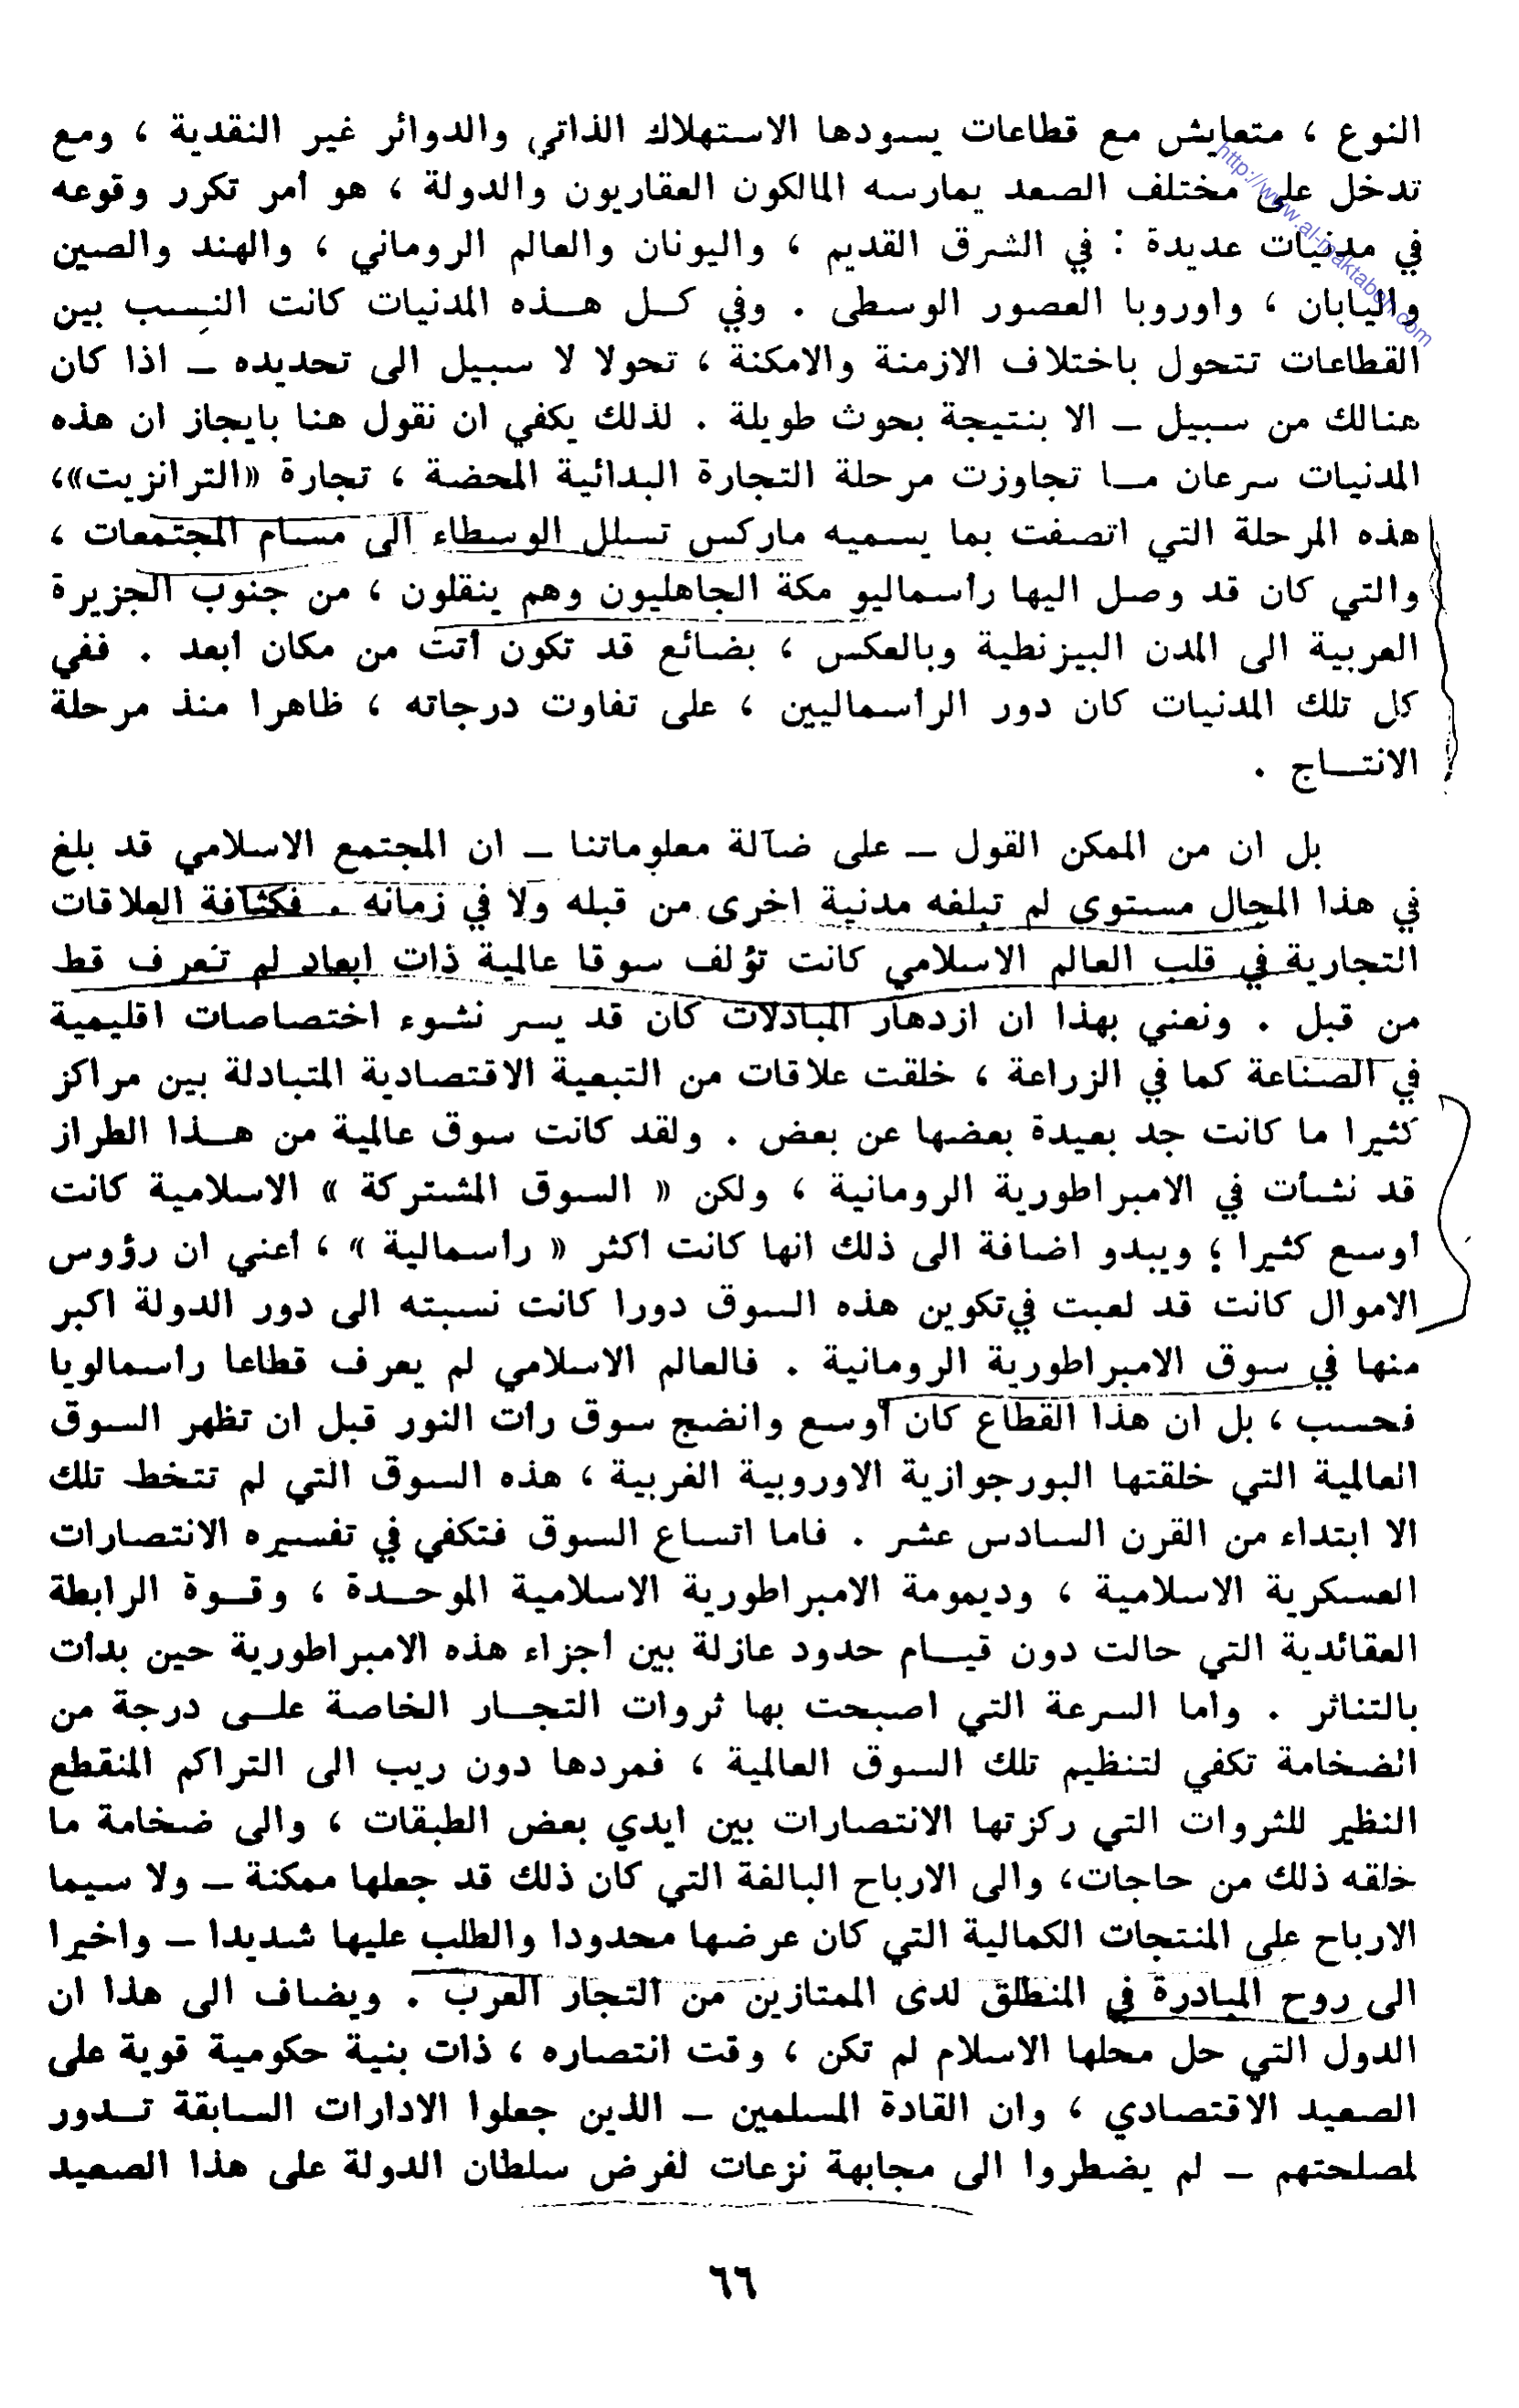 النوع ، متعايش مع قطاعات يسودها الاستهلاك الذاتي والدوائر غير النقدية ، ومع
تدخل على مختلف الصعد يمارسه المالكون العقاريون والدولة ، هو أمر تكرر وقوعه
في مدنيات عديدة : في الشرق القديم ، واليونان والعالم الروماني ، والهند والصين
واليابان ، واوروبا العصور الوسطى . وفي كل هذه المدنيات كانت النسب بين
القطاعات تتحول باختلاف الازمنة والامكنة ، تحولا لا سبيل الى تحديده – اذا كان
هنالك من سبيل – الا بنتيجة بحوث طويلة . لذلك يكفي ان نقول هنا بايجاز ان هذه
المدنيات سرعان ما تجاوزت مرحلة التجارة البدائية المحضة ، تجارة «الترانزيت»،
هذه المرحلة التي اتصفت بما يسميه ماركس تسلل الوسطاء الى مسام المجتمعات ،
والتي كان قد وصل اليها رأسماليو مكة الجاهليون وهم ينقلون ، من جنوب الجزيرة
العربية الى المدن البيزنطية وبالعكس ، بضائع قد تكون أتت من مكان أبعد . ففي
كل تلك المدنيات كان دور الرأسماليين ، على تفاوت درجاته ، ظاهرا منذ مرحلة
الانتاج .
بل ان من الممكن القول – على ضآلة معلوماتنا – ان المجتمع الاسلامي قد بلغ
في هذا المجال مستوى لم تبلغه مدنية اخرى من قبله ولا في زمانه . فكثافة العلاقات
التجارية في قلب العالم الاسلامي كانت تؤلف سوقا عالمية ذات ابعاد لم تعرف قط
من قبل . ونعني بهذا ان ازدهار المبادلات كان قد يسر نشوء اختصاصات اقليمية
في الصناعة كما في الزراعة ، خلقت علاقات من التبعية الاقتصادية المتبادلة بين مراكز
كثيرا ما كانت جد بعيدة بعضها عن بعض . ولقد كانت سوق عالمية من هذا الطراز
قد نشأت في الامبراطورية الرومانية ، ولكن « السوق المشتركة » الاسلامية كانت
أوسع كثيرا ؛ ويبدو اضافة الى ذلك انها كانت أكثر « رأسمالية » ، أعني ان رؤوس
الاموال كانت قد لعبت في تكوين هذه السوق دورا كانت نسبته الى دور الدولة اكبر
منها في سوق الامبراطورية الرومانية . فالعالم الاسلامي لم يعرف قطاعا رأسمالويا
فحسب ، بل ان هذا القطاع كان أوسع وانضج سوق رأت النور قبل ان تظهر السوق
العالمية التي خلقتها البورجوازية الاوروبية الغربية ، هذه السوق التي لم تتخط تلك
الا ابتداء من القرن السادس عشر . فاما اتساع السوق فتكفي في تفسيره الانتصارات
العسكرية الاسلامية ، وديمومة الامبراطورية الاسلامية الموحدة ، وقوة الرابطة
العقائدية التي حالت دون قيام حدود عازلة بين أجزاء هذه الامبراطورية حين بدأت
بالتناثر . وأما السرعة التي اصبحت بها ثروات التجار الخاصة على درجة من
الضخامة تكفي لتنظيم تلك السوق العالمية ، فمردها دون ريب الى التراكم المنقطع
النظير للثروات التي ركزتها الانتصارات بين ايدي بعض الطبقات ، والى ضخامة ما
خلقه ذلك من حاجات، والى الارباح البالغة التي كان ذلك قد جعلها ممكنة – ولا سيما
الارباح على المنتجات الكمالية التي كان عرضها محدودا والطلب عليها شديدا – واخيرا
الى روح المبادرة في المنطلق لدى الممتازين من التجار العرب . ويضاف الى هذا ان
الدول التي حل محلها الاسلام لم تكن ، وقت انتصاره ، ذات بنية حكومية قوية على
الصعيد الاقتصادي ، وان القادة المسلمين – الذين جعلوا الادارات السابقة تدور
لمصلحتهم – لم يضطروا الى مجابهة نزعات لفرض سلطان الدولة على هذا الصعيد
٦٦
http://www.al-maktabeh.com